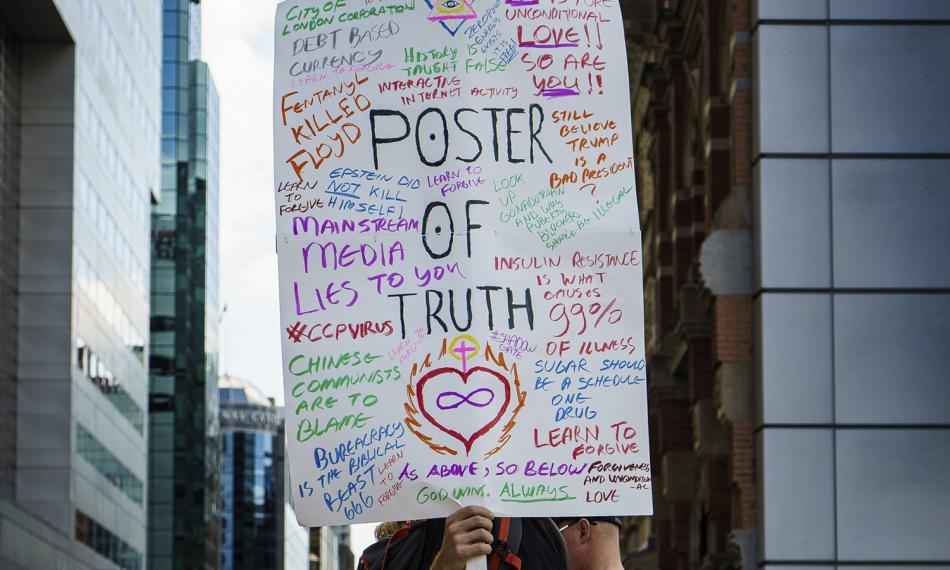 CITY OF
LONDON CORPORATION
DEBT BASED
CURRENCY
LEARN TO FORGIVE
HISTORY IS
TAUGHT FALSE
INTERACTIVE
INTERNET ACTIVITY
UNCONDITIONAL
LOVE!!
SO ARE
YOU!!
FENTANYL
KILLED
FLOYD
POSTER
OF
TRUTH
STILL
BELIEVE
TRUMP
IS A
BAD PRESIDENT
?
LEARN
TO
FORGIVE
EPSTEIN DID
NOT KILL
HIMSELF!
LEARN TO
FORGIVE
LOOK
UP
AND WHY
PUBERTY
BLOCKERS
SHOULD BE ILLEGAL
MAINSTREAM
MEDIA
LIES TO YOU
INSULIN RESISTANCE
IS WHAT
CAUSES
99%
OF ILLNESS
#CCPVIRUS
LEARN TO
FORGIVE
#SHADOW
GATE
CHINESE
COMMUNISTS
ARE TO
BLAME
SUGAR SHOULD
BE A SCHEDULE
ONE
DRUG
BUREACRACY
IS THE BIBLICAL
BEAST
666
LEARN
TO
FORGIVE
LEARN TO
FORGIVE
AS ABOVE, SO BELOW
GOD WINS. ALWAYS
FORGIVENESS
AND
LOVE